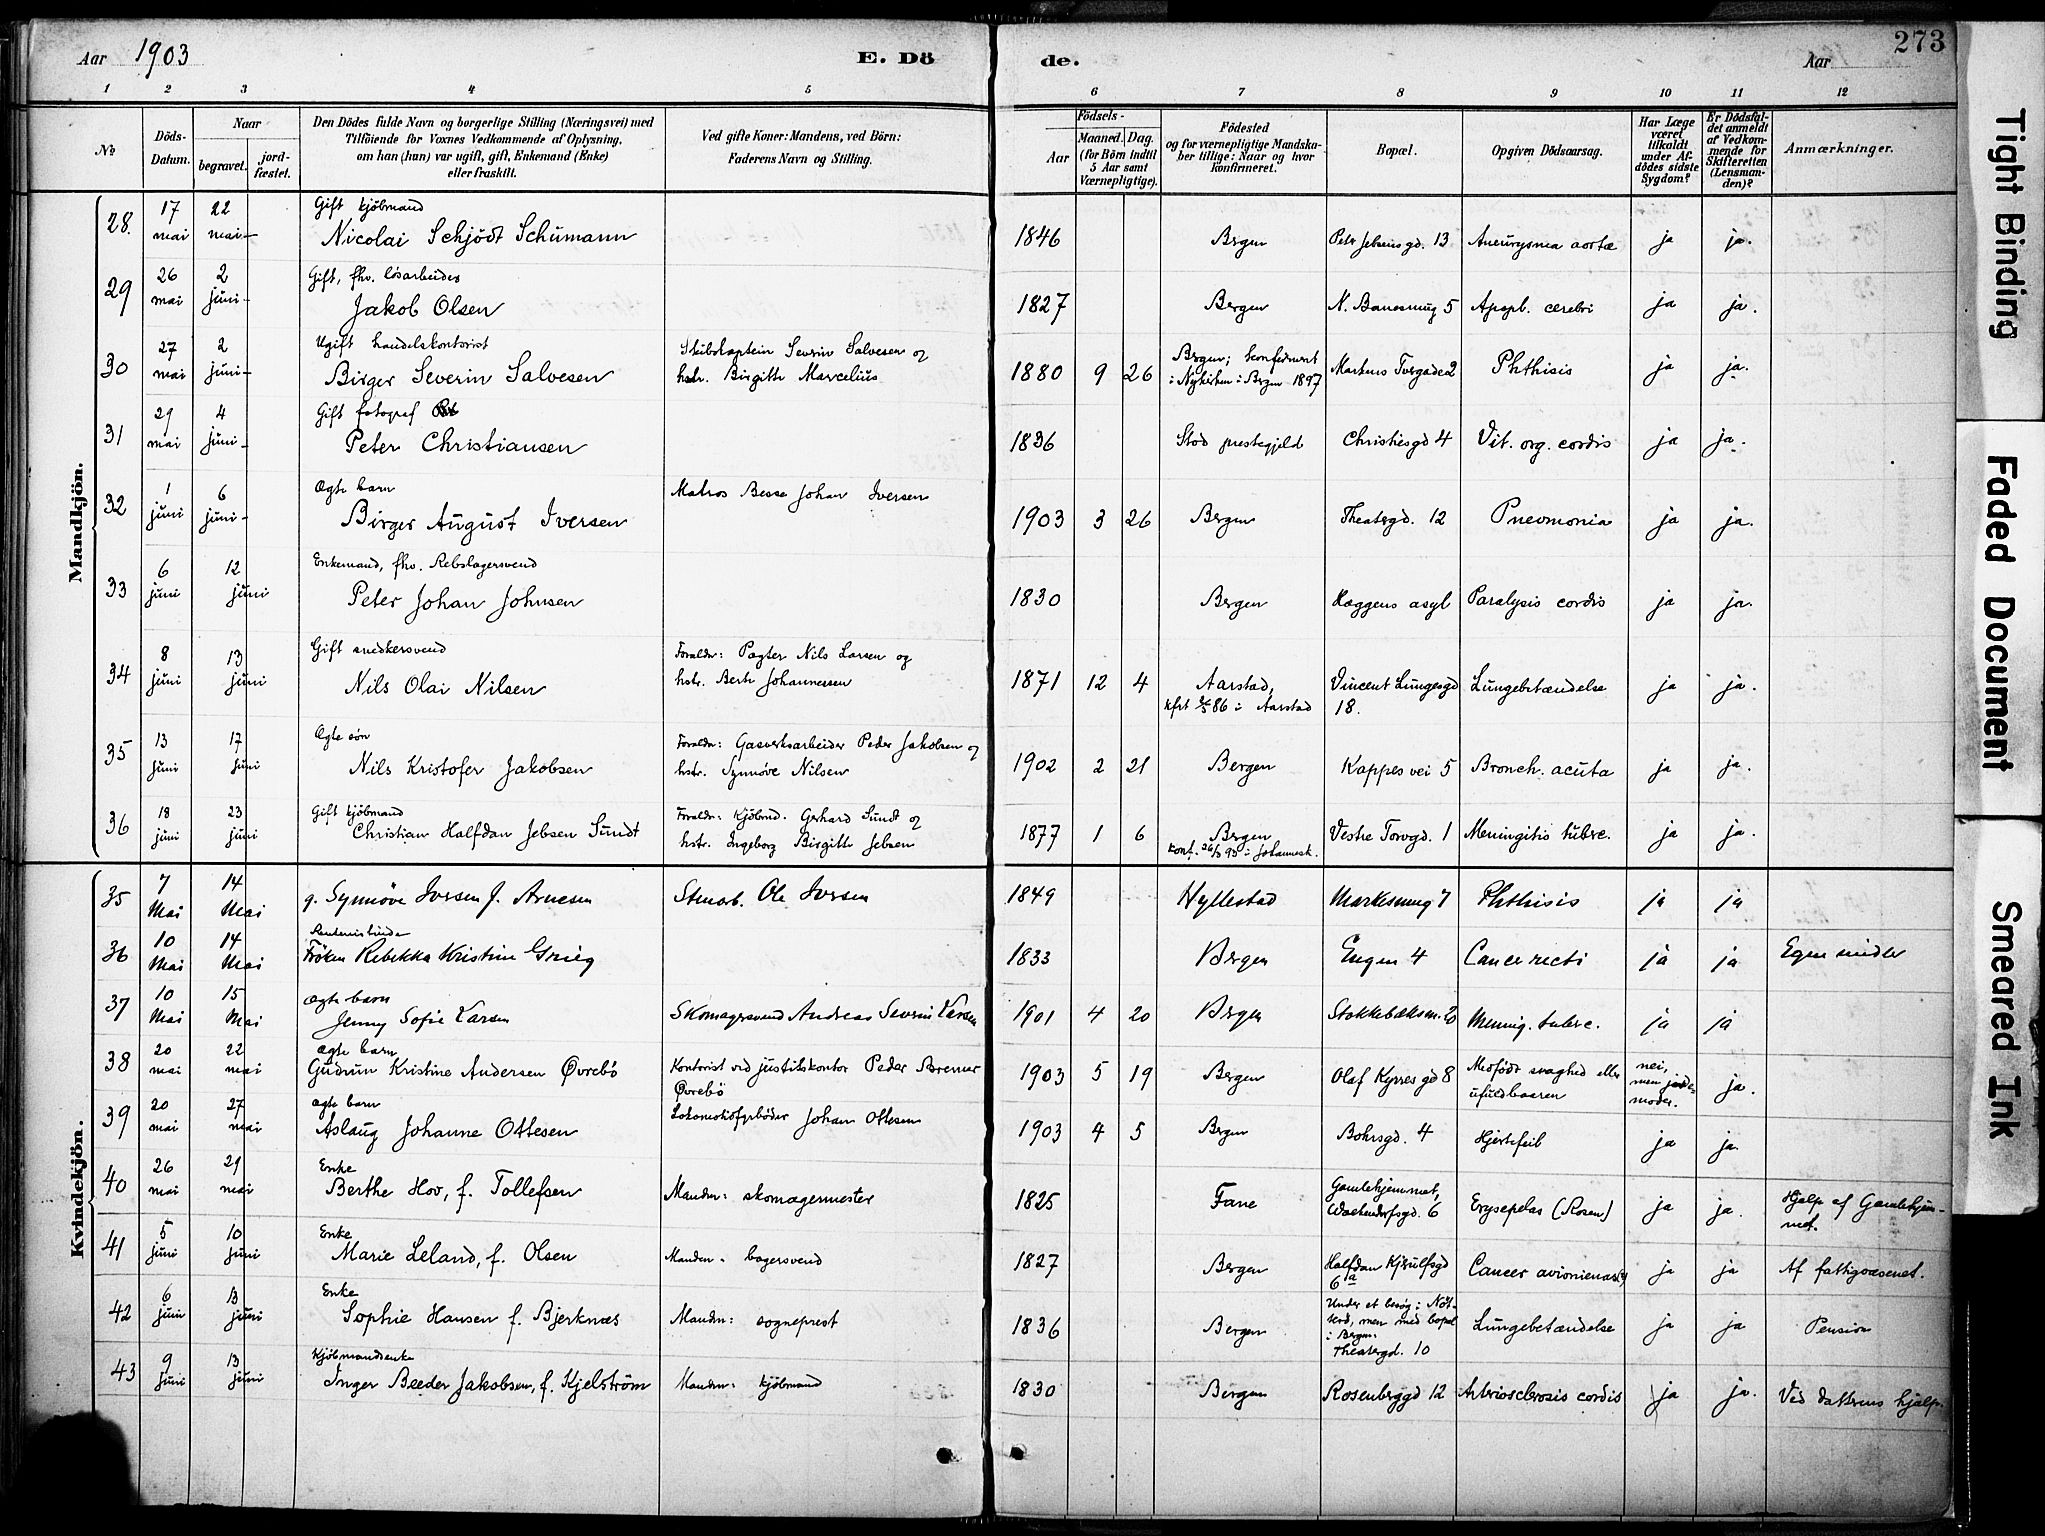 Aar 1903
E. Dö
de.
Aar
273
1 2 3 4 5 6 7 8 9 10 11 12
No
Döds-
Datum.
Naar
begravet.
jord-
fæstet.
Den Dödes fulde Navn og borgerlige Stilling (Næringsvei) med
Tilföiende for Voxnes Vedkommende af Oplysning,
om han (hun) var ugift, gift, Enkemand (Enke)
eller fraskilt.
Ved gifte Koner: Mandens, ved Börn:
Faderens Navn og Stilling.
Födsels-
Aar
Maaned. Dag.
(for Börn indtil
5 Aar samt
Værnepligtige).
Födested
og for værnepligtige Mandska-
ber tillige: Naar og hvor
konfirmeret.
Bopæl.
Opgiven Dödsaarsag.
Har Læge
været
tilkaldt
under Af-
dödes sidste
Sygdom?
Er Dödsfal-
det anmeldt
af Vedkom-
mende for
Skifteretten
(Lensman-
den)?
Anmærkninger.
Mandkjön.
28. 17 mai 22 mai
Gift kjöbmand
Nicolai Schjödt Schumann
1846 Bergen Peter Jebsens gd. 13 Aneurysma aortæ ja ja.
29 26 mai 2 juni
Gift, fhv. lösarbeider
Jakob Olsen
1827 Bergen N. 5 Apopl. cerebri ja ja.
30 27 mai 2 juni
Ugift handelskontorist
Birger Severin Salvesen
Skibskaptein Severin Salvesen og
hstr. Birgitte Marcelius
1880 9 26 Bergen; konfirmert
i Nykirken i Bergen 1897
Markens Tvergade 2 Phthisis ja ja.
31 29 mai 4 juni
Gift fotograf
Peter Christiansen
1836 Stod prestegjeld Christiesgd 4 Vit. org. cordis ja ja.
32 1 juni 6 juni
Ægte barn
Birger August Iversen
Matros Besse Johan Iversen
1903 3 26 Bergen Theatergd. 12 Pneumonia ja ja.
33 6 juni 12 juni
Enkemand, fhv. Rebslagersvend
Peter Johan Johnsen
1830 Bergen Hæggens asyl Paralysis cordis ja ja.
34 8 juni 13 juni
Gift snedkersvend
Nils Olai Nilsen
Forældr: Pagter Nils Larsen og
hstr. Berte Johannessen
1871 12 4 Aarstad,
86 i Aarstad
Vincent Lungesgd
18.
Lungebetændelse ja ja.
35 13 juni 17 juni
Ægte søn
Nils Kristofer Jakobsen
Forældr: Gasverksarbeider Peder Jakobsen og
hstr. Synnøve Nilsen
1902 2 21 Bergen Kappes vei 5 Bronch. acuta ja ja.
36 18 juni 23 juni
Gift kjöbmand
Christian Halfdan Jebsen Sundt
Forældr: Kjöbmd. Gerhard Sundt og
hstr. Ingeborg Birgitte Jebsen
1877 1 6 Bergen
konf. 26/3 93 i Johannesk.
Vestre Torvgd. 1 Meningitis tuberc. ja ja.
Kvindekjön.
35 7 Mai 14 Mai
g. Synnöve Iversen f. Arnesen
Stenarb. Ole Iversen
1849 Hyllestad 7 Phthisis ja ja
36 10 Mai 14 Mai
Rentenistinde
Fröken Rebekka Kristine Grieg
1833 Bergen Engen 4 Cancer recti ja ja Egne midler
37 10 Mai 15 Mai
Ægte barn
Jenny Sofie Larsen
Skomagersvend Andreas Severin Larsen
1901 4 20 Bergen Mening. tuberc. ja ja
38 20 mai 22 mai
Ægte barn
Gudrun Kristine Andersen Øvrebö
Kontorist ved justitskontor Peder Bremer
Øvrebö
1903 5 19 Bergen Olaf Kyrres gd 8 Medfödt svaghed eller
ufuldbaaren
nei,
men jorde-
moder.
ja.
39 20 mai 27 mai
Ægte barn
Aslaug Johanne Ottesen
Lokomotivfyrböder Johan Ottesen
1903 4 5 Bergen Bohrsgd. 4 Hjertefeil ja ja.
40 26 mai 29 mai
Enke
Berthe Hov, f. Tollefsen
Manden: skomagermester
1825 Fane Gamlehjemmet,
Wæhendorfsgd. 6
Erysepelas (Rosen) ja ja. Hjælp af Gamlehjem-
met.
41 5 juni 10 juni
Enke
Marie Leland, f. Olsen
Manden: bagersvend
1827 Bergen Halfdan Kjerulfsgd
6 a
Cancer ja ja Af fattigvæsenet.
42 6 juni 13 juni
Enke
Sophie Hansen f. Bjerknæs
Manden: sogneprest
1836 Bergen Under et besøg i Nöt-
terö, men med bopæl
i Bergen:
Theatergd. 10
Lungebetændelse ja ja Pension
43 9 juni 13 juni
Kjöbmandsenke
Inger Beeder Jakobsen, f. Kjelström
Manden: kjöbmand
1830 Bergen Rosenberggd 12 Arteriosclerosis cordis ja ja. Ved datterens hjælp.
Tight Binding
Faded Document
Smeared Ink